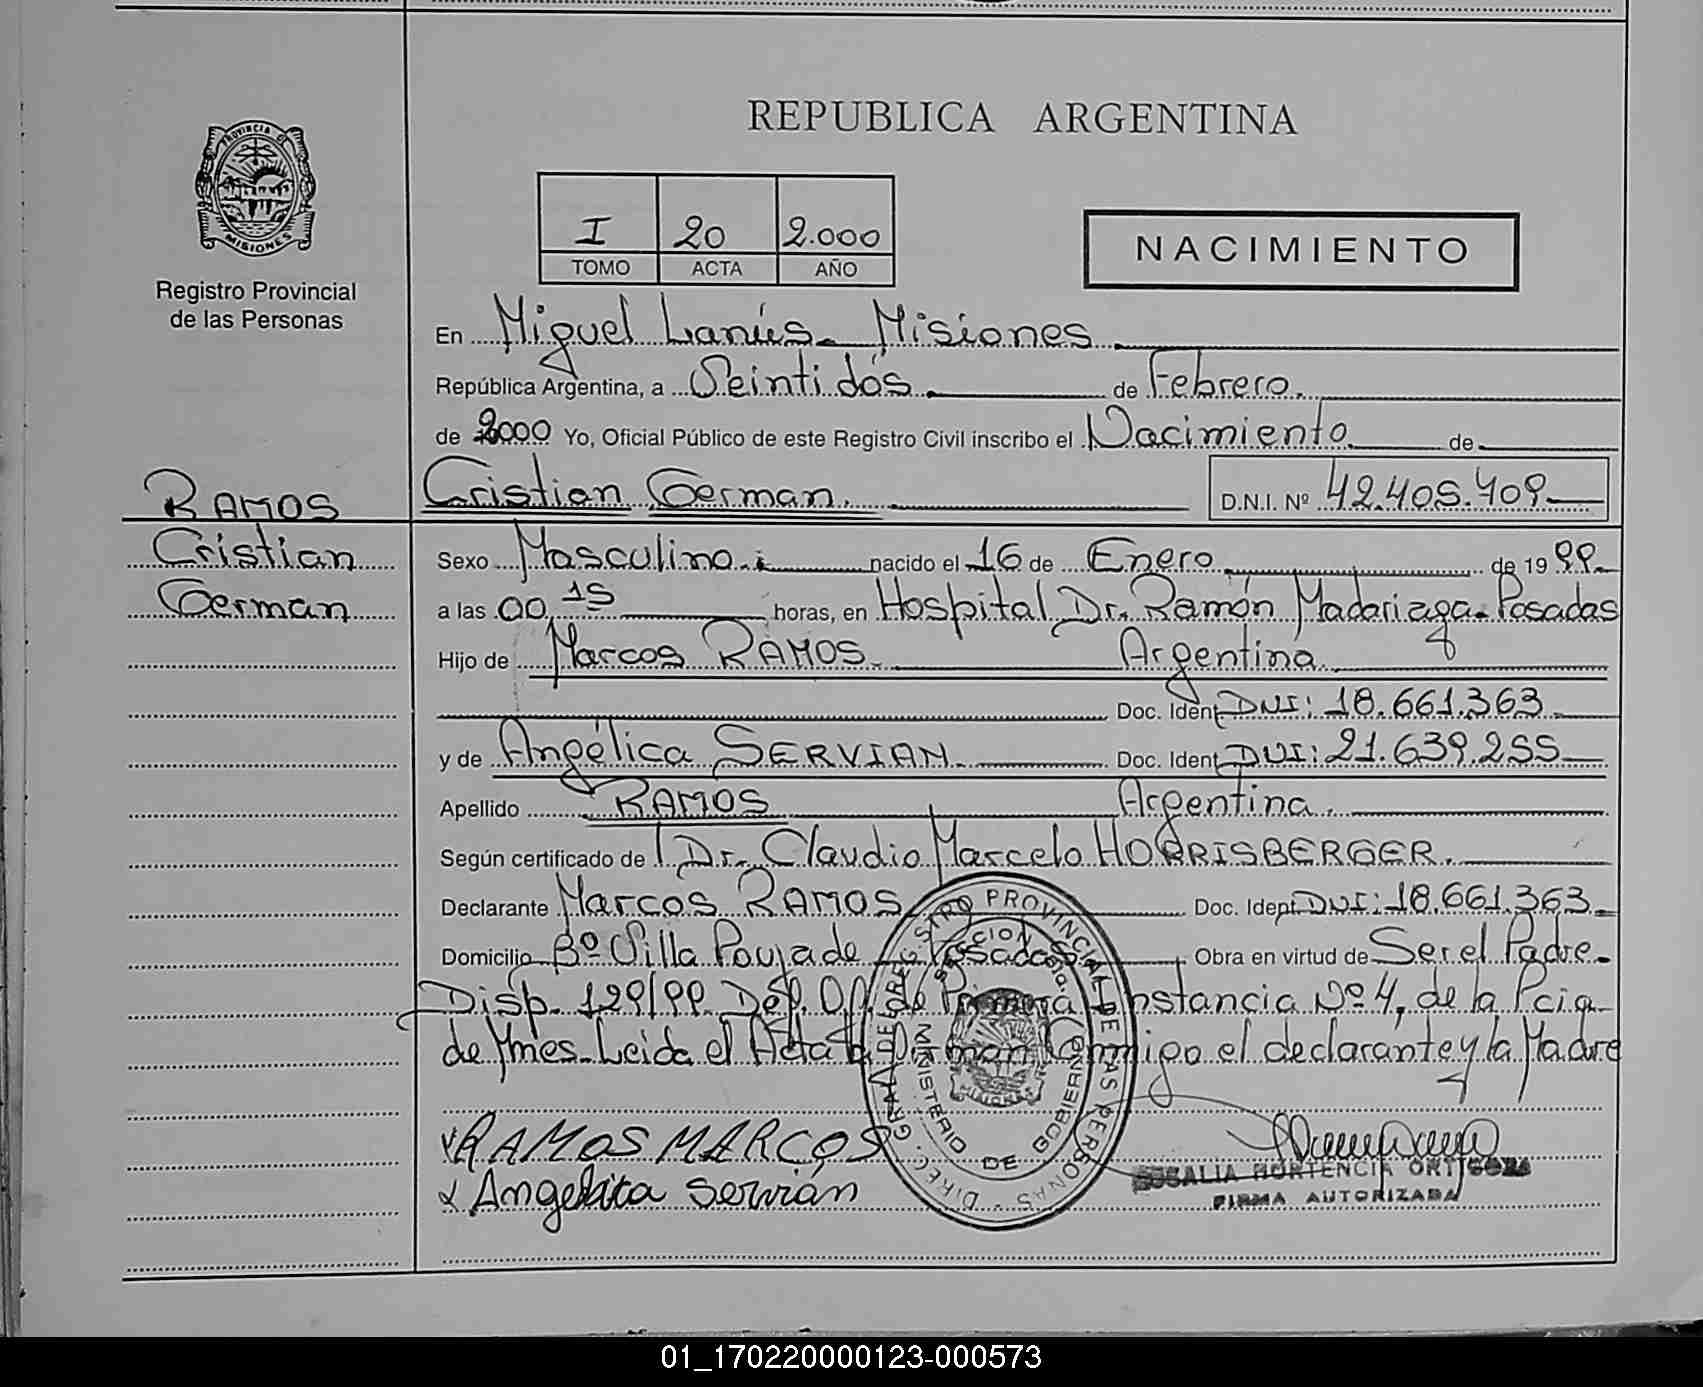 REPUBLICA ARGENTINA
PROVINCIA DE
MISIONES
Registro Provincial
de las Personas
I 20 2.000
TOMO ACTA AÑO
NACIMIENTO
En Miguel Lanús - Misiones
República Argentina, a Veintidós de Febrero.
de 2000 Yo, Oficial Público de este Registro Civil inscribo el Nacimiento de
RAMOS
Cristian German
Cristian German. D.N.I. Nº 42.405.409
Sexo Masculino. nacido el 16 de Enero de 1999
a las 00,15 horas, en Hospital Dr. Ramón Madariaga - Posadas
Hijo de Marcos RAMOS. Argentina.
Doc. Ident DNI: 18.661.363
y de Angélica SERVIAN. Doc. Ident DNI: 21.639.255
Apellido RAMOS Argentina.
Según certificado de Dr. Claudio Marcelo HORRISBERGER.
Declarante Marcos RAMOS Doc. Ident DNI: 18.661.363
Domicilio Bº Villa Poujade - Posadas Obra en virtud de Ser el Padre.
Disp. 129/99 Def. Of. de Primera Instancia Nº 4, de la Pcia
de Mnes. Leida el Acta la Firman Conmigo el declarante y la Madre
RAMOS MARCOS
Angelica Servián
DIREC. GRAL DE REGISTRO PROVINCIAL DE LAS PERSONAS
MINISTERIO DE GOBIERNO
MISIONES
ROSALIA HORTENCIA ORTIGOZA
FIRMA AUTORIZADA
01_170220000123-000573